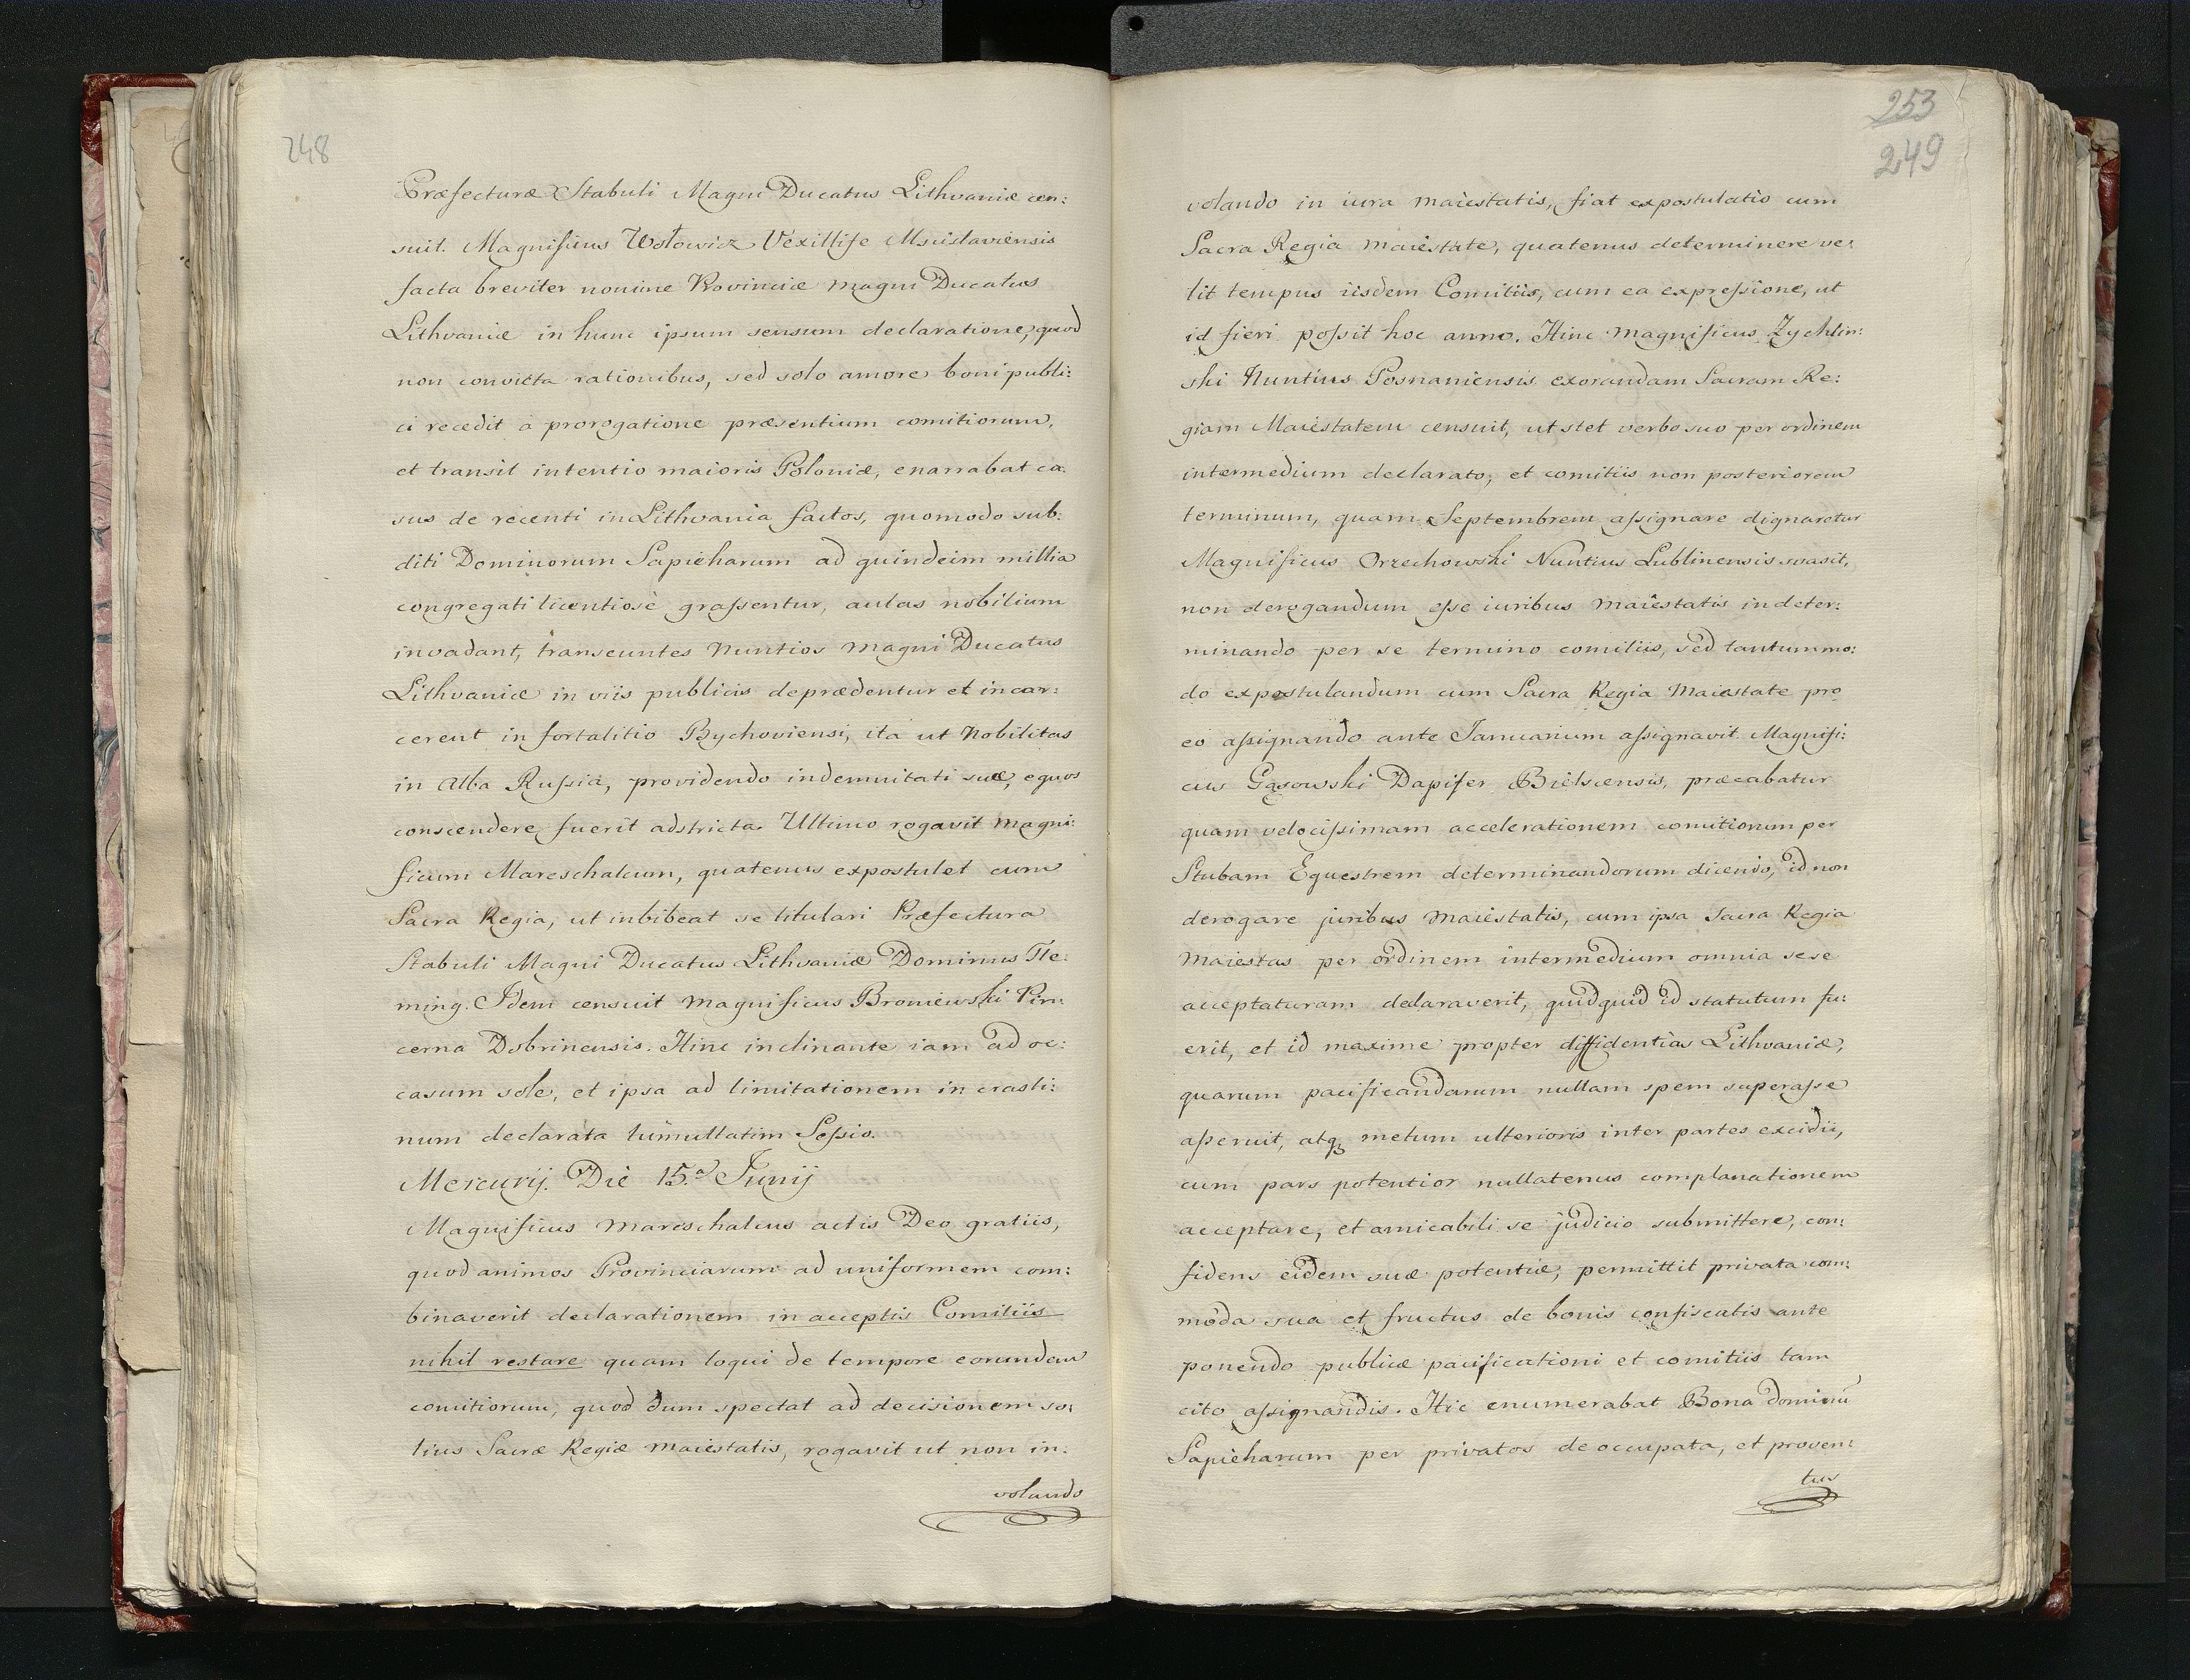 248
Præfecturæ Stabuli Magni Ducatus Lithvaniæ cen:
suit. Magnificus Wołowicz Vexillife Mscislaviensis
facta breviter nomine Provinciæ Magni Ducatus
Lithvaniæ in hunc ipsum sensum declaratione, quod
non convicta rationibus, sed solo amore boni publi:
ci recedit a prorogatione præsentium comitiorum,
et transit intentio maioris Poloniæ, enarrabat ca:
sus de recenti in Lithvania factos, quomodo sub:
diti Dominorum Sapieharum ad quindeim millia
congregati licentiosè graſsentur, aulas nobilium
invadant, transeuntes Nuntios Magni Ducatus
Lithvaniæ in viis publicis deprædentur et incar:
cerent in fortalitio Bychoviensi, ita ut Nobilitas
in Alba Ruſsia, providendo indemnitati suæ, equos
conscendere fuerit adstricta. Ultimo rogavit Magni:
ficum Mareschalcum, quatenus expostulet cum
Sacra Regia, ut inbibeat se titulari Præfectura
Stabuli Magni Ducatus Lithvaniæ Dominus Fle:
ming. Idem censuit Magnificus Broniewski Pin:
cerna Dobrinensis. Hinc inclinante iam ad oc:
casum sole, et ipsa ad limitationem in crasti:
num declarata tumultatim Seſsio.
Mercurij. Die 15.a Junij
Magnificus Mareschalcus actis Deo gratiis,
quod animos Provinciarum ad uniformem com:
binaverit declarationem in acceptis Comitiis
nihil restare quam loqui de tempore eorundem
comitiorum, quod dum spectat ad decisionem so:
lius Sacræ Regiæ Maiestatis, rogavit ut non in:
volando
253
249
volando in iura Maiestatis, fiat expostulatio cum
Sacra Regia Maiestate, quatenus determinere ve:
lit tempus iisdem Comitiis, cum ea expreſsione, ut
id fieri poſsit hoc anno. Hinc Magnificus Zychlin:
ski Nuntius Posnaniensis exorandam Sacram Re:
giam Maiestatem censuit, ut stet verbo suo per ordinem
intermedium declarato, et comitiis non posteriorem
terminum, quam Septembrem aſsignare dignaretur
Magnificus Orzechowski Nuntius Lublinensis svasit,
non derogandum eſse iuribus Maiestatis in deter:
minando per se termino comitiis, sed tantummo:
do expostulandum cum Sacra Regia Maiestate pro
eo aſsignando ante Januarium aſsignavit. Magnifi:
cus Gąsowski Dapifer Bielscensis, præcabatur
quam velociſsimam accelerationem comitiorum per
Stubam Equestrem determinandorum dicendo, id non
derogare juribus Maiestatis, cum ipsa Sacra Regia
Maiestas per ordinem intermedium omnia sese
acceptaturam declaraverit, quidquid id statutum fu:
erit, et id maxime propter diffidentias Lithvaniæ,
quarum pacificandarum nullam spem superaſse
aſseruit, atq metum ulterioris inter partes excidii,
cum pars potentior nullatenus complanationem
acceptare, et amicabili se judicio submittere, con:
fidens eidem suæ potentiæ, permittit privata com:
moda sua et fructus de bonis confiscatis ante
ponendo publicæ pacificationi et comitiis tam
cito aſsignandis. Hic enumerabat Bona dominū
Sapieharum per privatos deoccupata, et proven:
tus